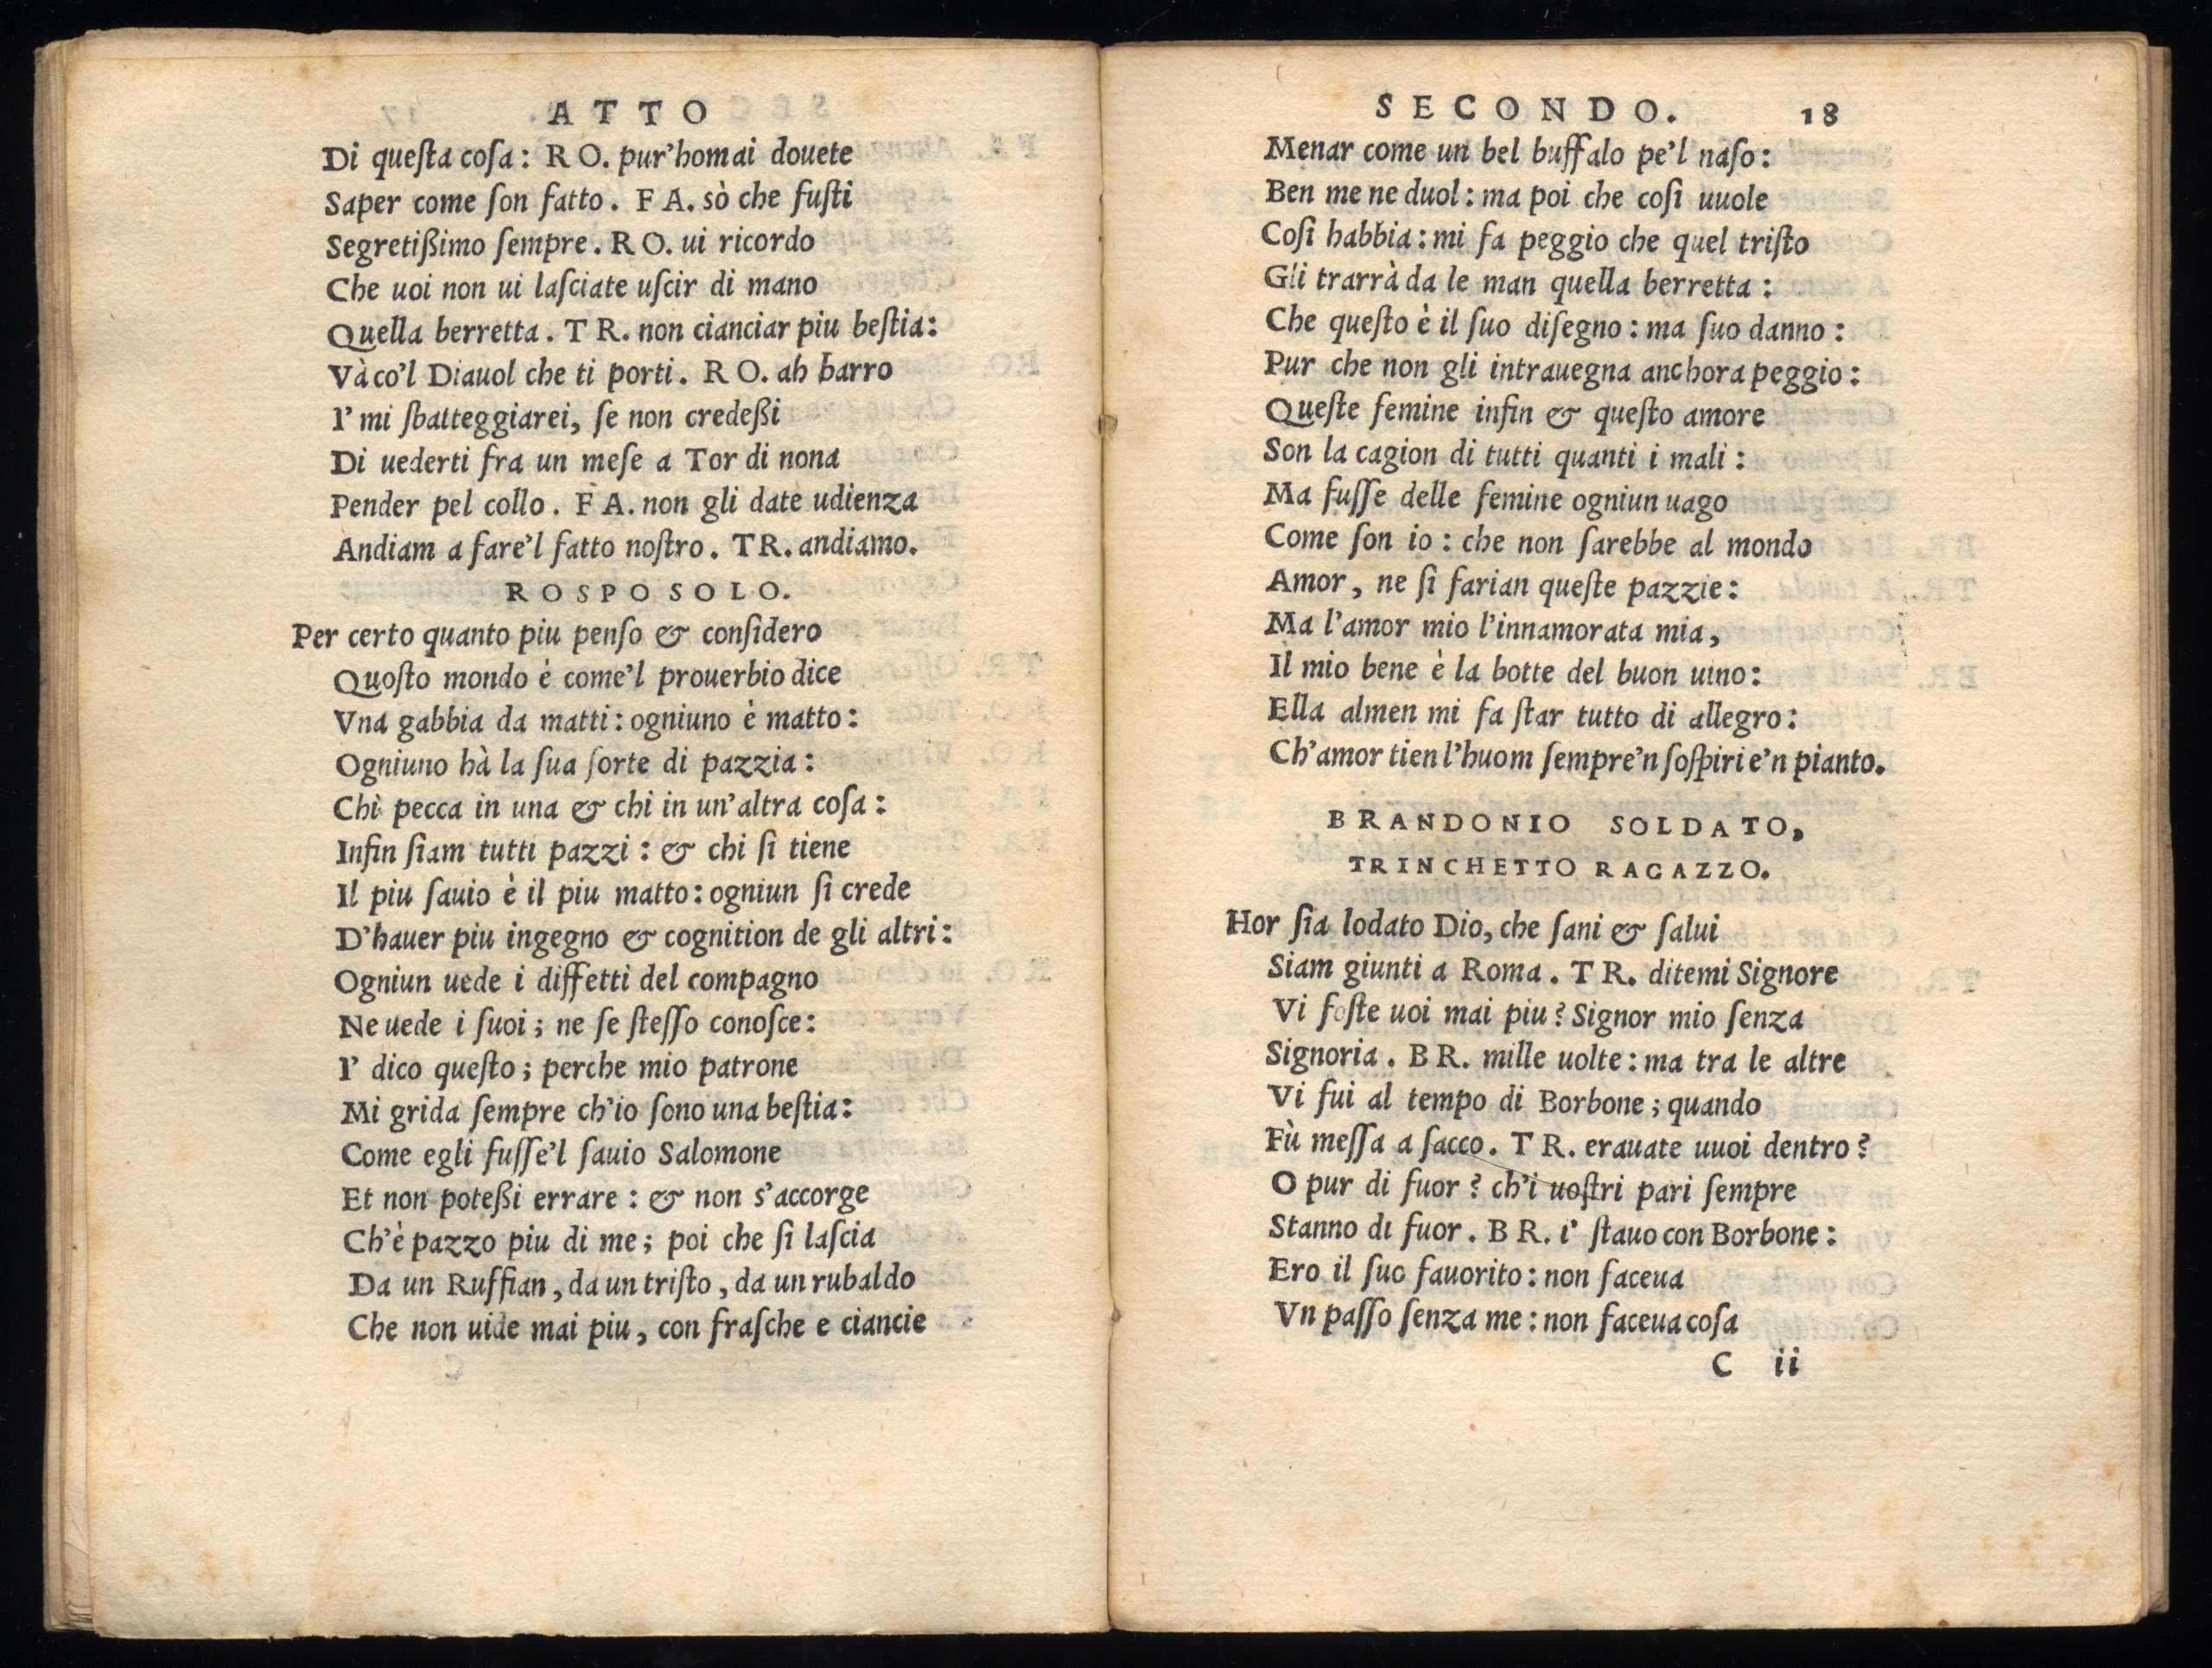 ATTO
Di queſta coſa: RO. pur'homai douete
Saper come ſon fatto. FA. sò che fuſti
Segretißimo ſempre. RO. ui ricordo
Che uoi non ui laſciate uſcir di mano
Quella berretta. TR. non cianciar piu beſtia:
Và co'l Diauol che ti porti. RO. ah barro
I' mi ſbatteggiarei, ſe non credeßi
Di uederti fra un meſe a Tor di nona
Pender pel collo. FA. non gli date udienza
Andiam a fare'l fatto noſtro. TR. andiamo.
ROSPO SOLO.
Per certo quanto piu penſo & conſidero
Quoſto mondo è come'l prouerbio dice
Vna gabbia da matti: ogniuno è matto:
Ogniuno hà la ſua ſorte di pazzia:
Chì pecca in una & chi in un'altra coſa:
Infin ſiam tutti pazzi: & chi ſi tiene
Il piu ſauio è il piu matto: ogniun ſi crede
D'hauer piu ingegno & cognition de gli altri:
Ogniun uede i diffetti del compagno
Ne uede i ſuoi; ne ſe ſteſſo conoſce:
I' dico queſto; perche mio patrone
Mi grida ſempre ch'io ſono una beſtia:
Come egli fuſſe'l ſauio Salomone
Et non poteßi errare: & non s'accorge
Ch'è pazzo piu di me; poi che ſi laſcia
Da un Ruffian, da un triſto, da un rubaldo
Che non uide mai piu, con fraſche e ciancie
SECONDO. 18
Menar come un bel buffalo pe'l naſo:
Ben me ne duol: ma poi che coſi uuole
Coſi habbia: mi fa peggio che quel triſto
Gli trarrà da le man quella berretta:
Che queſto è il ſuo diſegno: ma ſuo danno:
Pur che non gli intrauegna anchora peggio:
Queſte femine infin & queſto amore
Son la cagion di tutti quanti i mali:
Ma fuſſe delle femine ogniun uago
Come ſon io: che non ſarebbe al mondo
Amor, ne ſi farian queſte pazzie:
Ma l'amor mio l'innamorata mia,
Il mio bene è la botte del buon uino:
Ella almen mi fa ſtar tutto di allegro:
Ch'amor tien l'huom ſempre'n ſoſpiri e'n pianto.
BRANDONIO SOLDATO,
TRINCHETTO RAGAZZO.
Hor ſia lodato Dio, che ſani & ſalui
Siam giunti a Roma. TR. ditemi Signore
Vi foſte uoi mai piu? Signor mio ſenza
Signoria. BR. mille uolte: ma tra le altre
Vi fui al tempo di Borbone; quando
Fù meſſa a ſacco. TR. erauate uuoi dentro?
O pur di fuor? ch'i uoſtri pari ſempre
Stanno di fuor. BR. i' ſtauo con Borbone:
Ero il ſuo fauorito: non faceua
Vn paſſo ſenza me: non faceua coſa
C ii